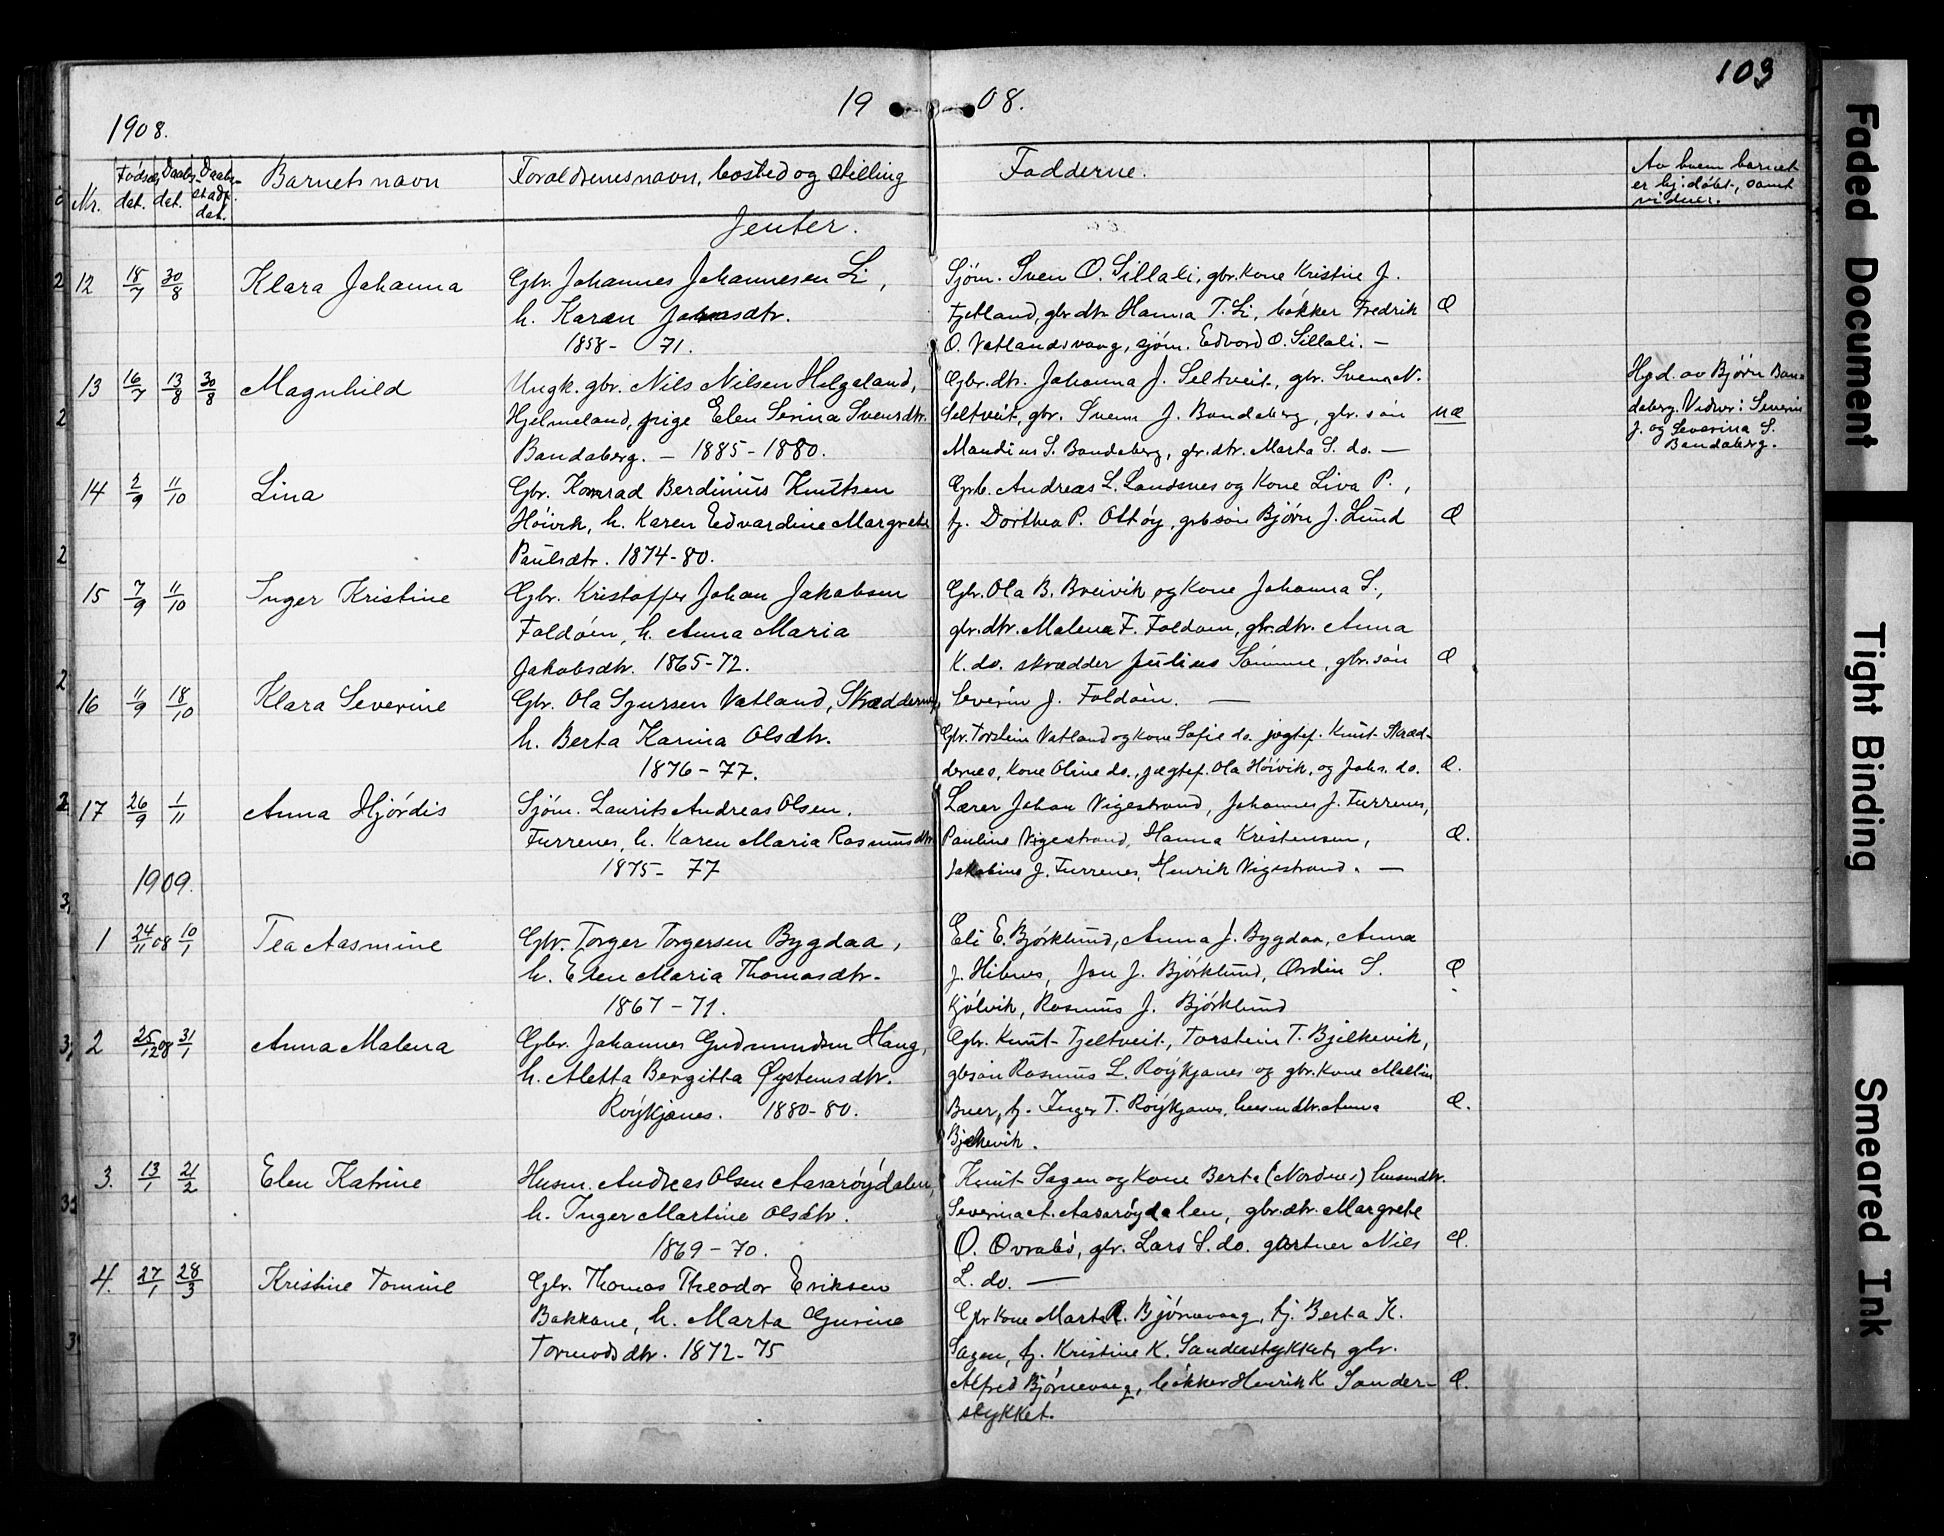 103
19 08.
1908.
Nr. Fødsels dat. Daabs dat. Daabs stadf. dat. Barnets navn Foraldrenes navn, bosted og stilling Fadderne. Av hvem barnet
er hj. døbt, samt
vidner.
Jenter.
12 18/7 30/8 Klara Johanna
Gbr. Johannes Johannesen Li,
h. Karen Johnsdtr.
1858- 71.
Sjøm. Sven O. Sillali, gbr. kone Kristine J.
Fjetland, gbr dtr Hanna T. Li, bøkker Fredrik Æ
O. Vatlandsvaag, sjøm. Edvard O. Sillali. —
13 16/7 13/8 30/8 Magnhild
Ungk. gbr. Nils Nilsen Helgeland,
Hjelmeland, pige Elen Serina Svensdtr.
Bandaberg. — 1885-1880.
Gbr. dtr. Johanna J. Seltveit, gbr. Svend N.
Seltveit, gbr. Svenn J. Bandaberg, gbr. søn UÆ
Mandius S. Bandaberg, gbr. dtr. Marta S. do. —
Hjd. av Bjørn Banda
daberg. Vidner: Severin
J. og Severina S.
Bandaberg.
14 2/9 11/10 Lina
Gbr. Konrad Berdinius Knutsen
Høivik, h. Karen Edvardine Margrete
Paulsdtr. 1874-80.
Gbr. Andreas L. Landsnes og kone Liva P.,
tj. Dorthea P. Ottøy, gbsøn Bjørn J. Lund Æ
15 7/9 11/10 Inger Kristine
Gbr. Kristoffer Johan Jakobsen
Foldøen, h. Anna Maria
Jakobsdtr. 1865-72.
Gbr. Ola B. Breivik og kone Johanna S.,
gbr. dtr. Malena F. Foldøen, gbr. dtr. Anna
K. do. skrædder Julius Sømme, gbr. søn Æ
Severin J. Foldøen. —
16 11/9 18/10 Klara Severine
Gbr. Ola Sjursen Vatland, Skræddernes,
h. Berta Karina Olsdtr.
1876-77.
Gbr. Torstein Vatland og kone Sofie do. jægtef. Knut Skræd-
dernes, kone Oline do., jægtef. Ola Høivik, og Johs. do. Æ.
17 26/9 1/11 Anna Hjørdis
Sjøm. Laurits Andreas Olsen.
Furrenes, h. Karen Maria Rasmusdtr
1875- 77
Lærer Johan Vigestrand, Johannes J. Furrenes,
Pauline Vigestrand, Hanna Kristensen, Æ.
Jakobine J. Furrenes, Henrik Vigestrand. —
1909.
1 24/11 08 10/1 Tea Aasmine
Gbr. Torger Torgersen Bygdaa,
h. Elen Maria Thomasdtr.
1867-71.
Eli E. Bjørklund, Anna J. Bygdaa, Anna
J. Hibnes, Jon J. Bjørklund, Ordin S. Æ
Kjølvik, Rasmus J. Bjørklund
2 25/12 08 31/1 Anna Malena
Gbr. Johannes Gudmundsen Haug,
h. Aletta Bergitta Øystensdtr.
Røykjanes. 1880-80.
Gbr. Knut Tjeltveit, Torstein T. Bjelkevik,
gbsøn Rasmus L. Røykjanes og gbr. kone Mallin
Buer, tj. Inger T. Røykjanes, husmdtr. Anna Æ.
Bjelkevik.
3. 13/1 21/2 Elen Katrine
Husm. Andreas Olsen Aasarøydalen,
h. Inger Martine Olsdtr.
1869-70.
Knut Sagen og kone Berte (Nordnes) husmdtr.
Severina A. Aasarøydalen, gbr. dtr. Margrete
O. Ovrabø, gbr. Lars S. do. gartner Niels Æ.
L. do. —
4. 27/1 28/3 Kristine Tomine
Gbr. Thomas Theodor Eriksen
Bakkane, h. Marta Gurine
Tormodsdtr. 1872-75
Gbr kone Marta R. Bjørnevaag, tj. Berta K.
Sagen, tj. Kristine K. Sanderstykket, gbr.
Alfred Bjørnevaag, bøkker Henrik K. Sander- Æ.
stykket.
Faded Document
Tight Binding
Smeared Ink